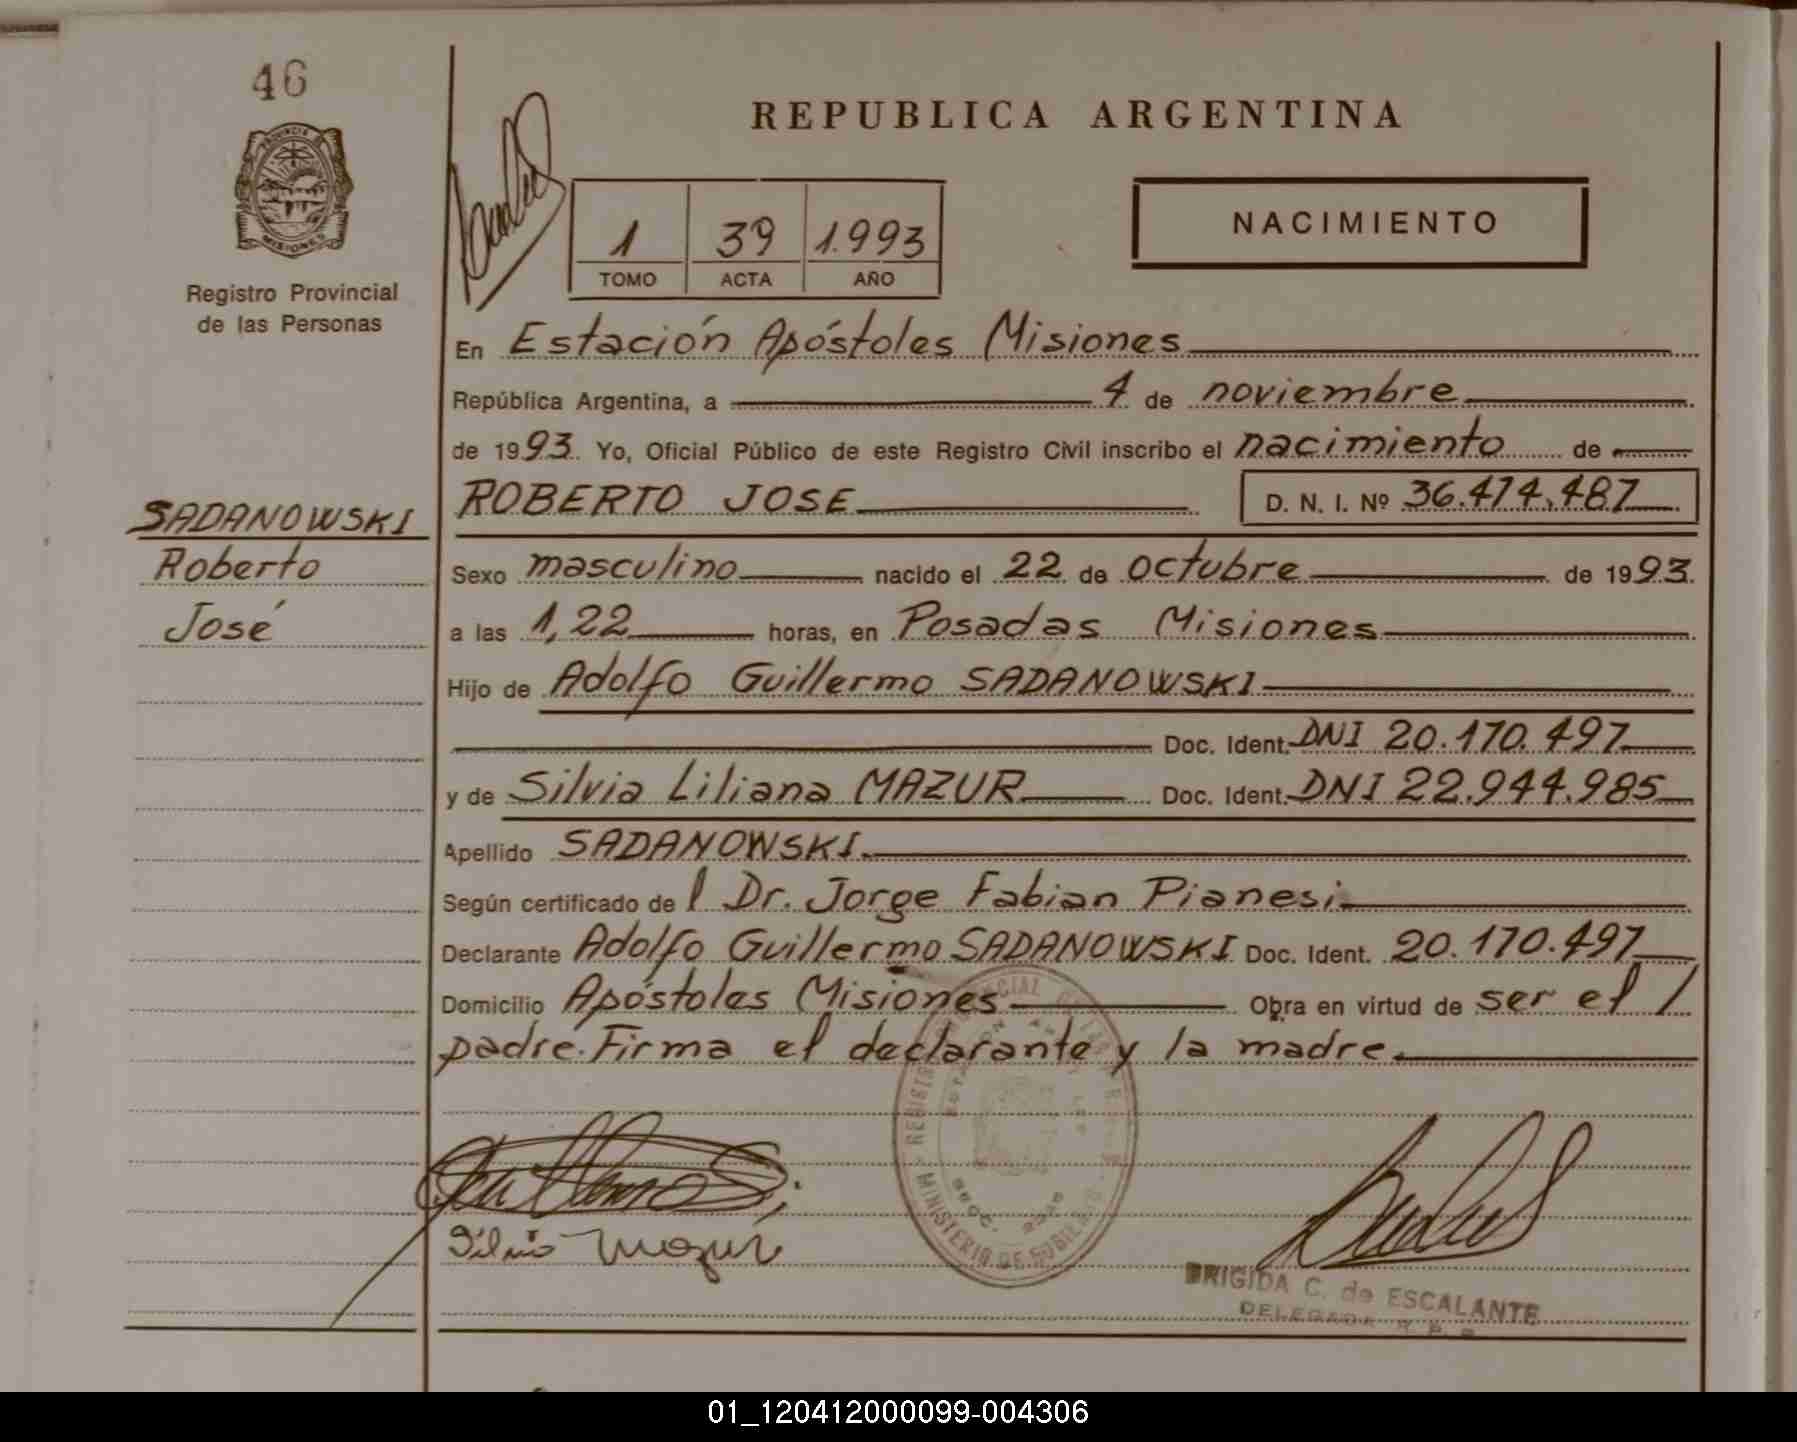 46
PROVINCIA DE
MISIONES
Registro Provincial
de las Personas
REPUBLICA ARGENTINA
1 39 1.993
TOMO ACTA AÑO
NACIMIENTO
En Estación Apóstoles Misiones
República Argentina, a 4 de noviembre
de 1993. Yo, Oficial Público de este Registro Civil inscribo el nacimiento de
SADANOWSKI
Roberto
José
ROBERTO JOSE D. N. I. Nº 36.474.487
Sexo masculino nacido el 22 de octubre de 1993.
a las 1,22 horas, en Posadas Misiones
Hijo de Adolfo Guillermo SADANOWSKI
Doc. Ident. DNI 20.170.497
y de Silvia Liliana MAZUR Doc. Ident. DNI 22.944.985
Apellido SADANOWSKI.
Según certificado de l Dr. Jorge Fabian Pianesi
Declarante Adolfo Guillermo SADANOWSKI Doc. Ident. 20.170.497
Domicilio Apóstoles Misiones Obra en virtud de ser el /
padre. Firma el declarante y la madre.
Silvia Mazur
MINISTERIO DE GOBIERNO
BRIGIDA C. de ESCALANTE
DELEGADA R. P. P.
01_120412000099-004306